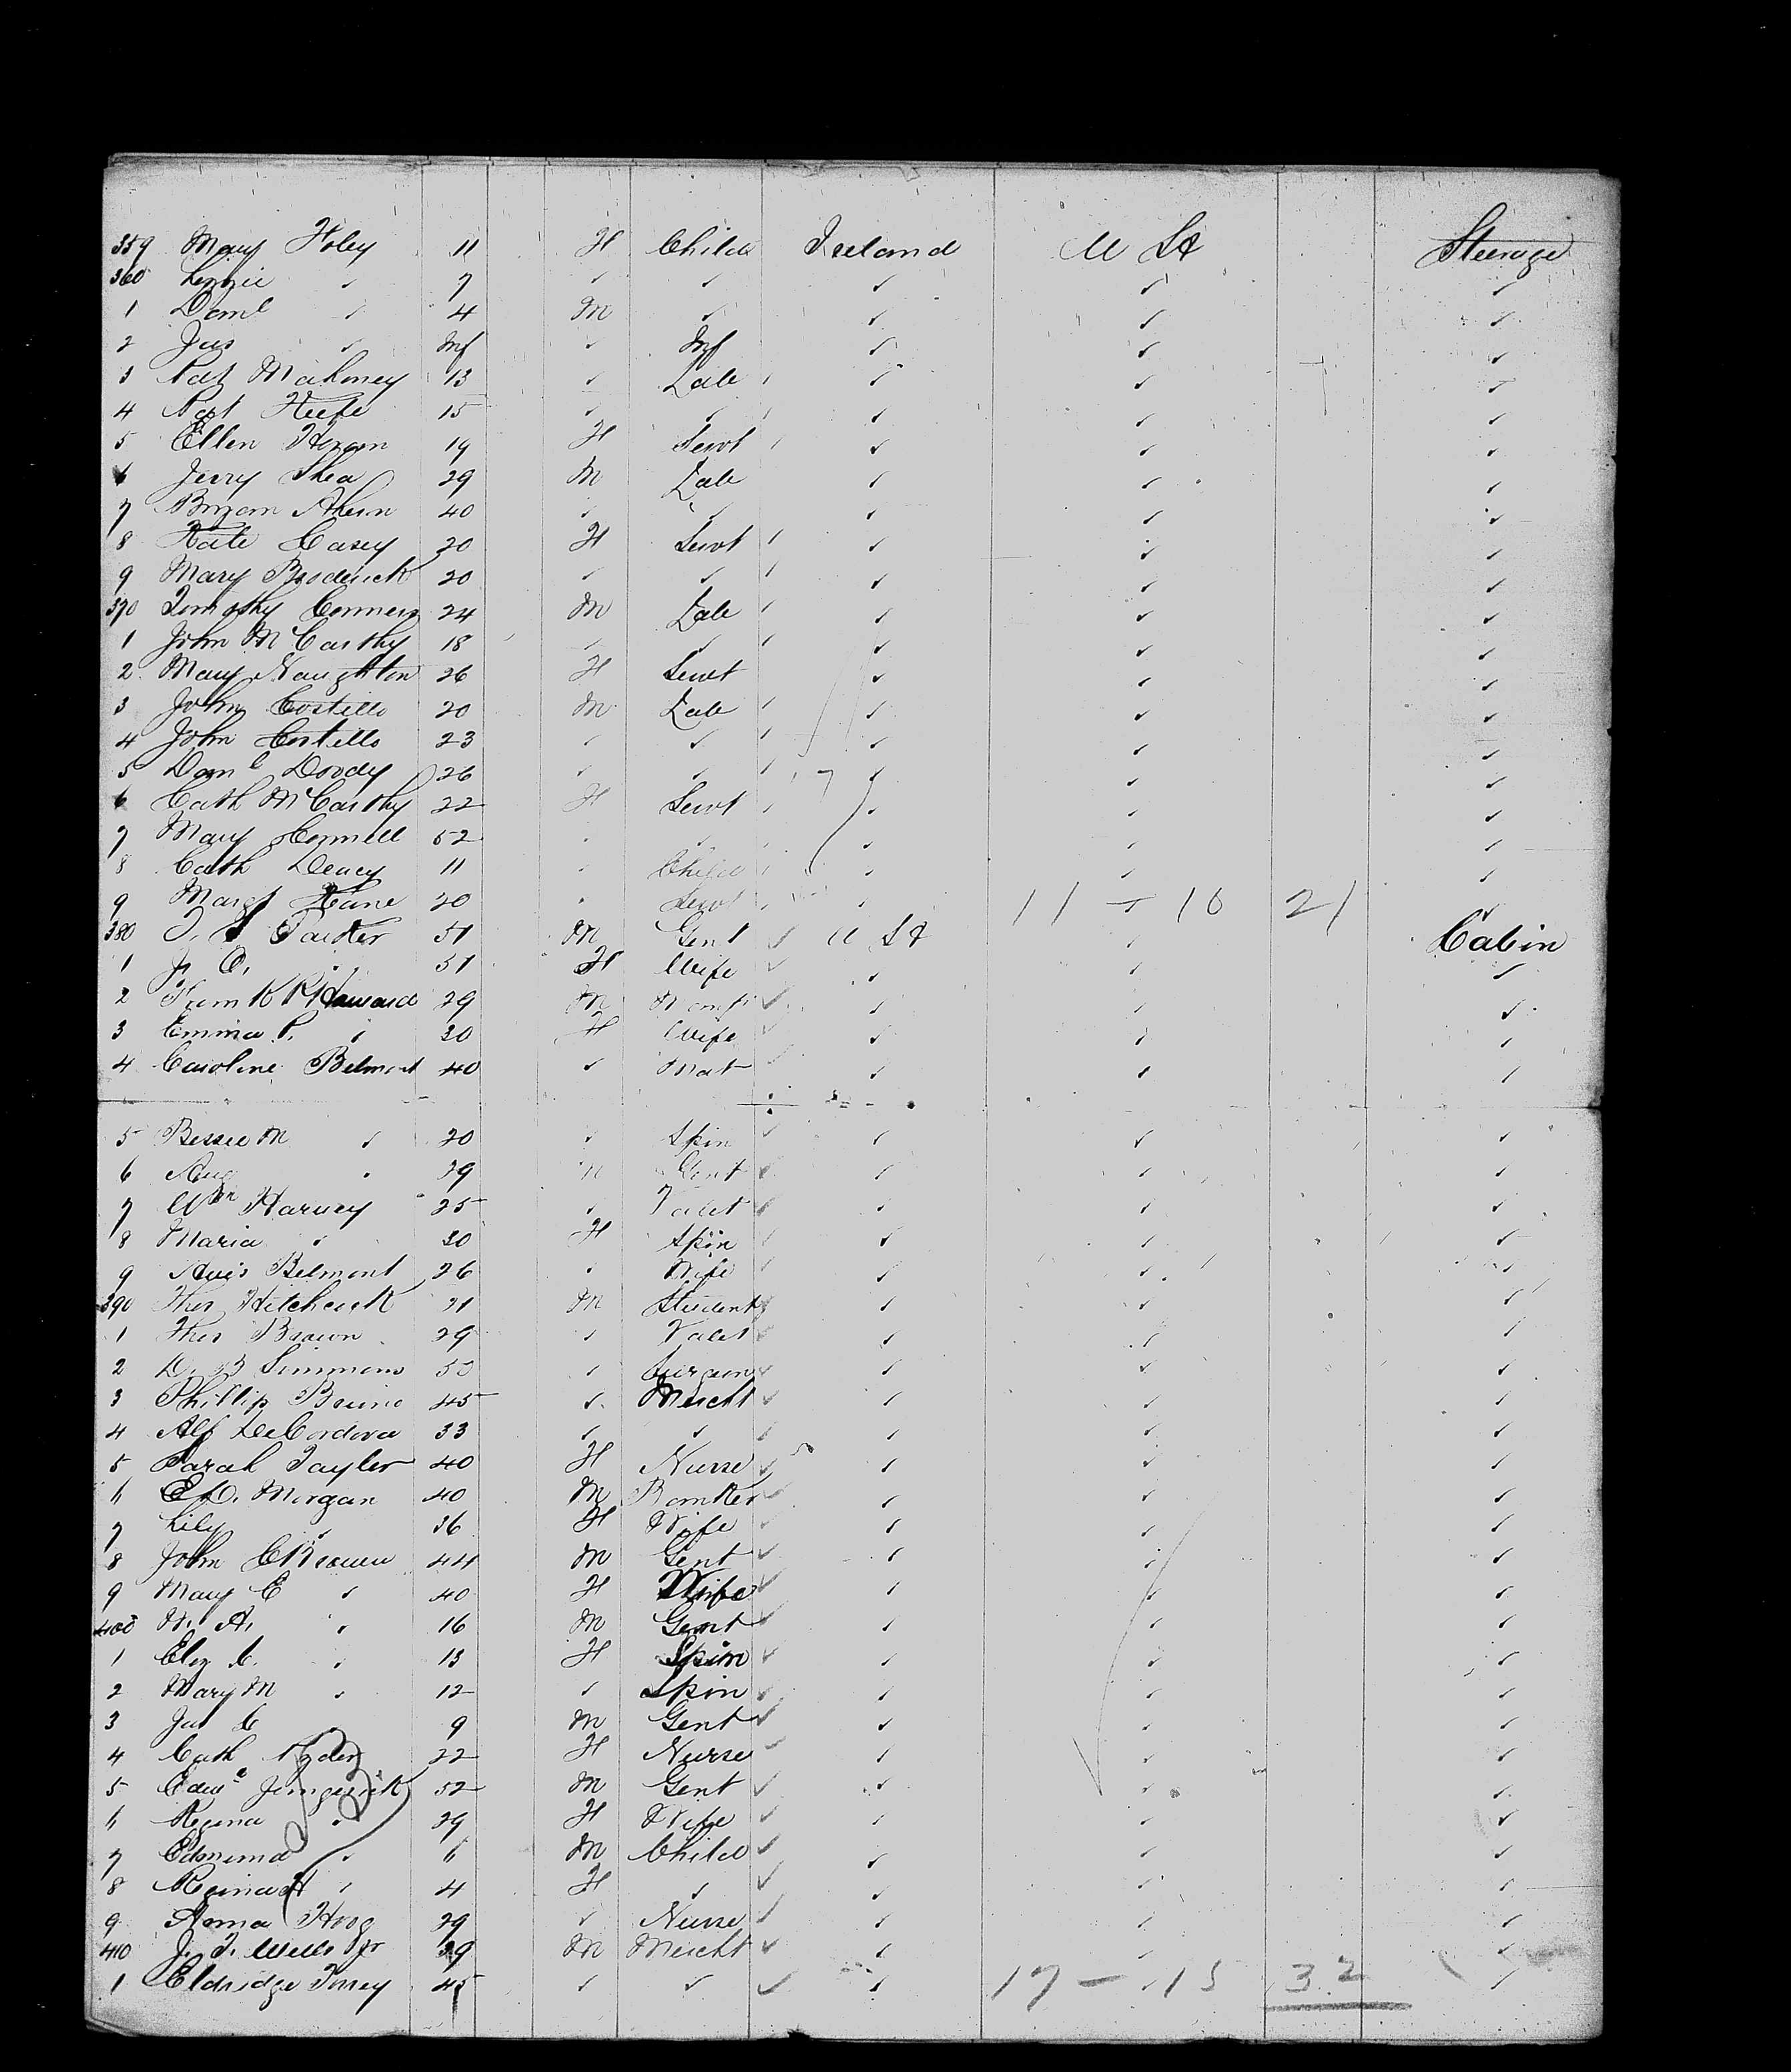 359 Mary Foley 11 F Child Ireland U St Steerage
360 Lizzie ✓ 7 ✓ ✓ ✓ ✓ ✓
1 Danl ✓ 4 M ✓ ✓ ✓ ✓
2 Jas ✓ Inf ✓ Inf ✓ ✓ ✓
3 Pat Mahoney 13 ✓ Lab ✓ ✓ ✓
4 Pat Keefe 15 ✓ ✓ ✓ ✓ ✓
5 Ellen Horan 19 F Servt ✓ ✓ ✓
6 Jerry Shea 29 M Lab ✓ ✓ ✓
7 Ahern 40 ✓ ✓ ✓ ✓ ✓
8 Kate Casey 20 F Servt ✓ ✓ ✓
9 Mary Broderick 20 ✓ ✓ ✓ ✓ ✓
370 Timothy Conners 24 M Lab ✓ ✓ ✓
1 John McCarthy 18 ✓ ✓ ✓ ✓ ✓
2 Mary Naughton 26 F Servt ✓ ✓ ✓
3 John Costello 20 M Lab ✓ ✓ ✓
4 John Costello 23 ✓ ✓ ✓ ✓ ✓
5 Danl Doody 26 ✓ ✓ ✓ ✓ ✓
6 Cath McCarthy 22 F Servt ✓ ✓ ✓
7 Mary Connell 52 ✓ ✓ ✓ ✓ ✓
8 Cath Deacy 11 ✓ Child ✓ ✓ ✓
9 Margt Kane 20 ✓ Servt ✓ 11 - 10 21 ✓
380 Parker 51 M Gent U St ✓ Cabin
1 J. ✓ 51 F Wife ✓ ✓ ✓
2 Howard 29 M ✓ ✓ ✓
3 Emma P. ✓ 30 F Wife ✓ ✓ ✓
4 Caroline Belmont 40 ✓ Mat ✓ ✓ ✓
5 Bessie M ✓ 20 ✓ Spin ✓ ✓ ✓
6 Aug ✓ 29 M Gent ✓ ✓ ✓
7 Wm Harvey 25 ✓ Valet ✓ ✓ ✓
8 Maria ✓ 30 F Spin ✓ ✓ ✓
9 Belmont 26 ✓ Wife ✓ ✓ ✓
390 Thos Hitchcock 21 M Student ✓ ✓ ✓
1 Thos Brown 29 ✓ Valet ✓ ✓ ✓
2 D. B Simmons 50 ✓ Surgeon ✓ ✓ ✓
3 Phillip 45 ✓ Mercht ✓ ✓ ✓
4 Alf DeCordova 33 ✓ ✓ ✓ ✓ ✓
5 Sarah Tayler 40 F Nurse ✓ ✓ ✓
6 E D. Morgan 40 M Banker ✓ ✓ ✓
7 Lily ✓ 36 F Wife ✓ ✓ ✓
8 John C Brown 44 M Gent ✓ ✓ ✓
9 Mary E ✓ 40 F Wife ✓ ✓ ✓
400 W. A. ✓ 16 M Gent ✓ ✓ ✓
1 Eliz C. ✓ 13 F Spin ✓ ✓ ✓
2 Mary M ✓ 12 ✓ Spin ✓ ✓ ✓
3 Jas C ✓ 9 M Gent ✓ ✓ ✓
4 Cath Ryder 22 F Nurse ✓ ✓ ✓
5 52 M Gent ✓ ✓ ✓
6 Regina ✓ 29 F Wife ✓ ✓ ✓
7 ✓ 6 M Child ✓ ✓ ✓
8 Regina H ✓ 4 F ✓ ✓ ✓ ✓
9 Anna Hoog 29 ✓ Nurse ✓ ✓ ✓
410 J. T. Wells Jr 29 M Mercht ✓ ✓ ✓
1 Eldridge Torrey 45 ✓ ✓ ✓ 17 - 15 32 ✓